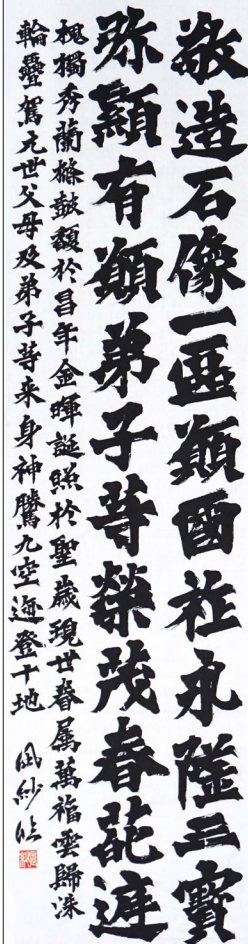 敬造石像一區願國祚永隆三寶
弥顯有願弟子等榮茂春葩庭
槐獨秀蘭條鼓馥於昌年金暉誕照於聖歲現世眷属萬福雲歸洙
輪疊駕元世父母及弟子等来身神騰九空迹登十地 紗臨